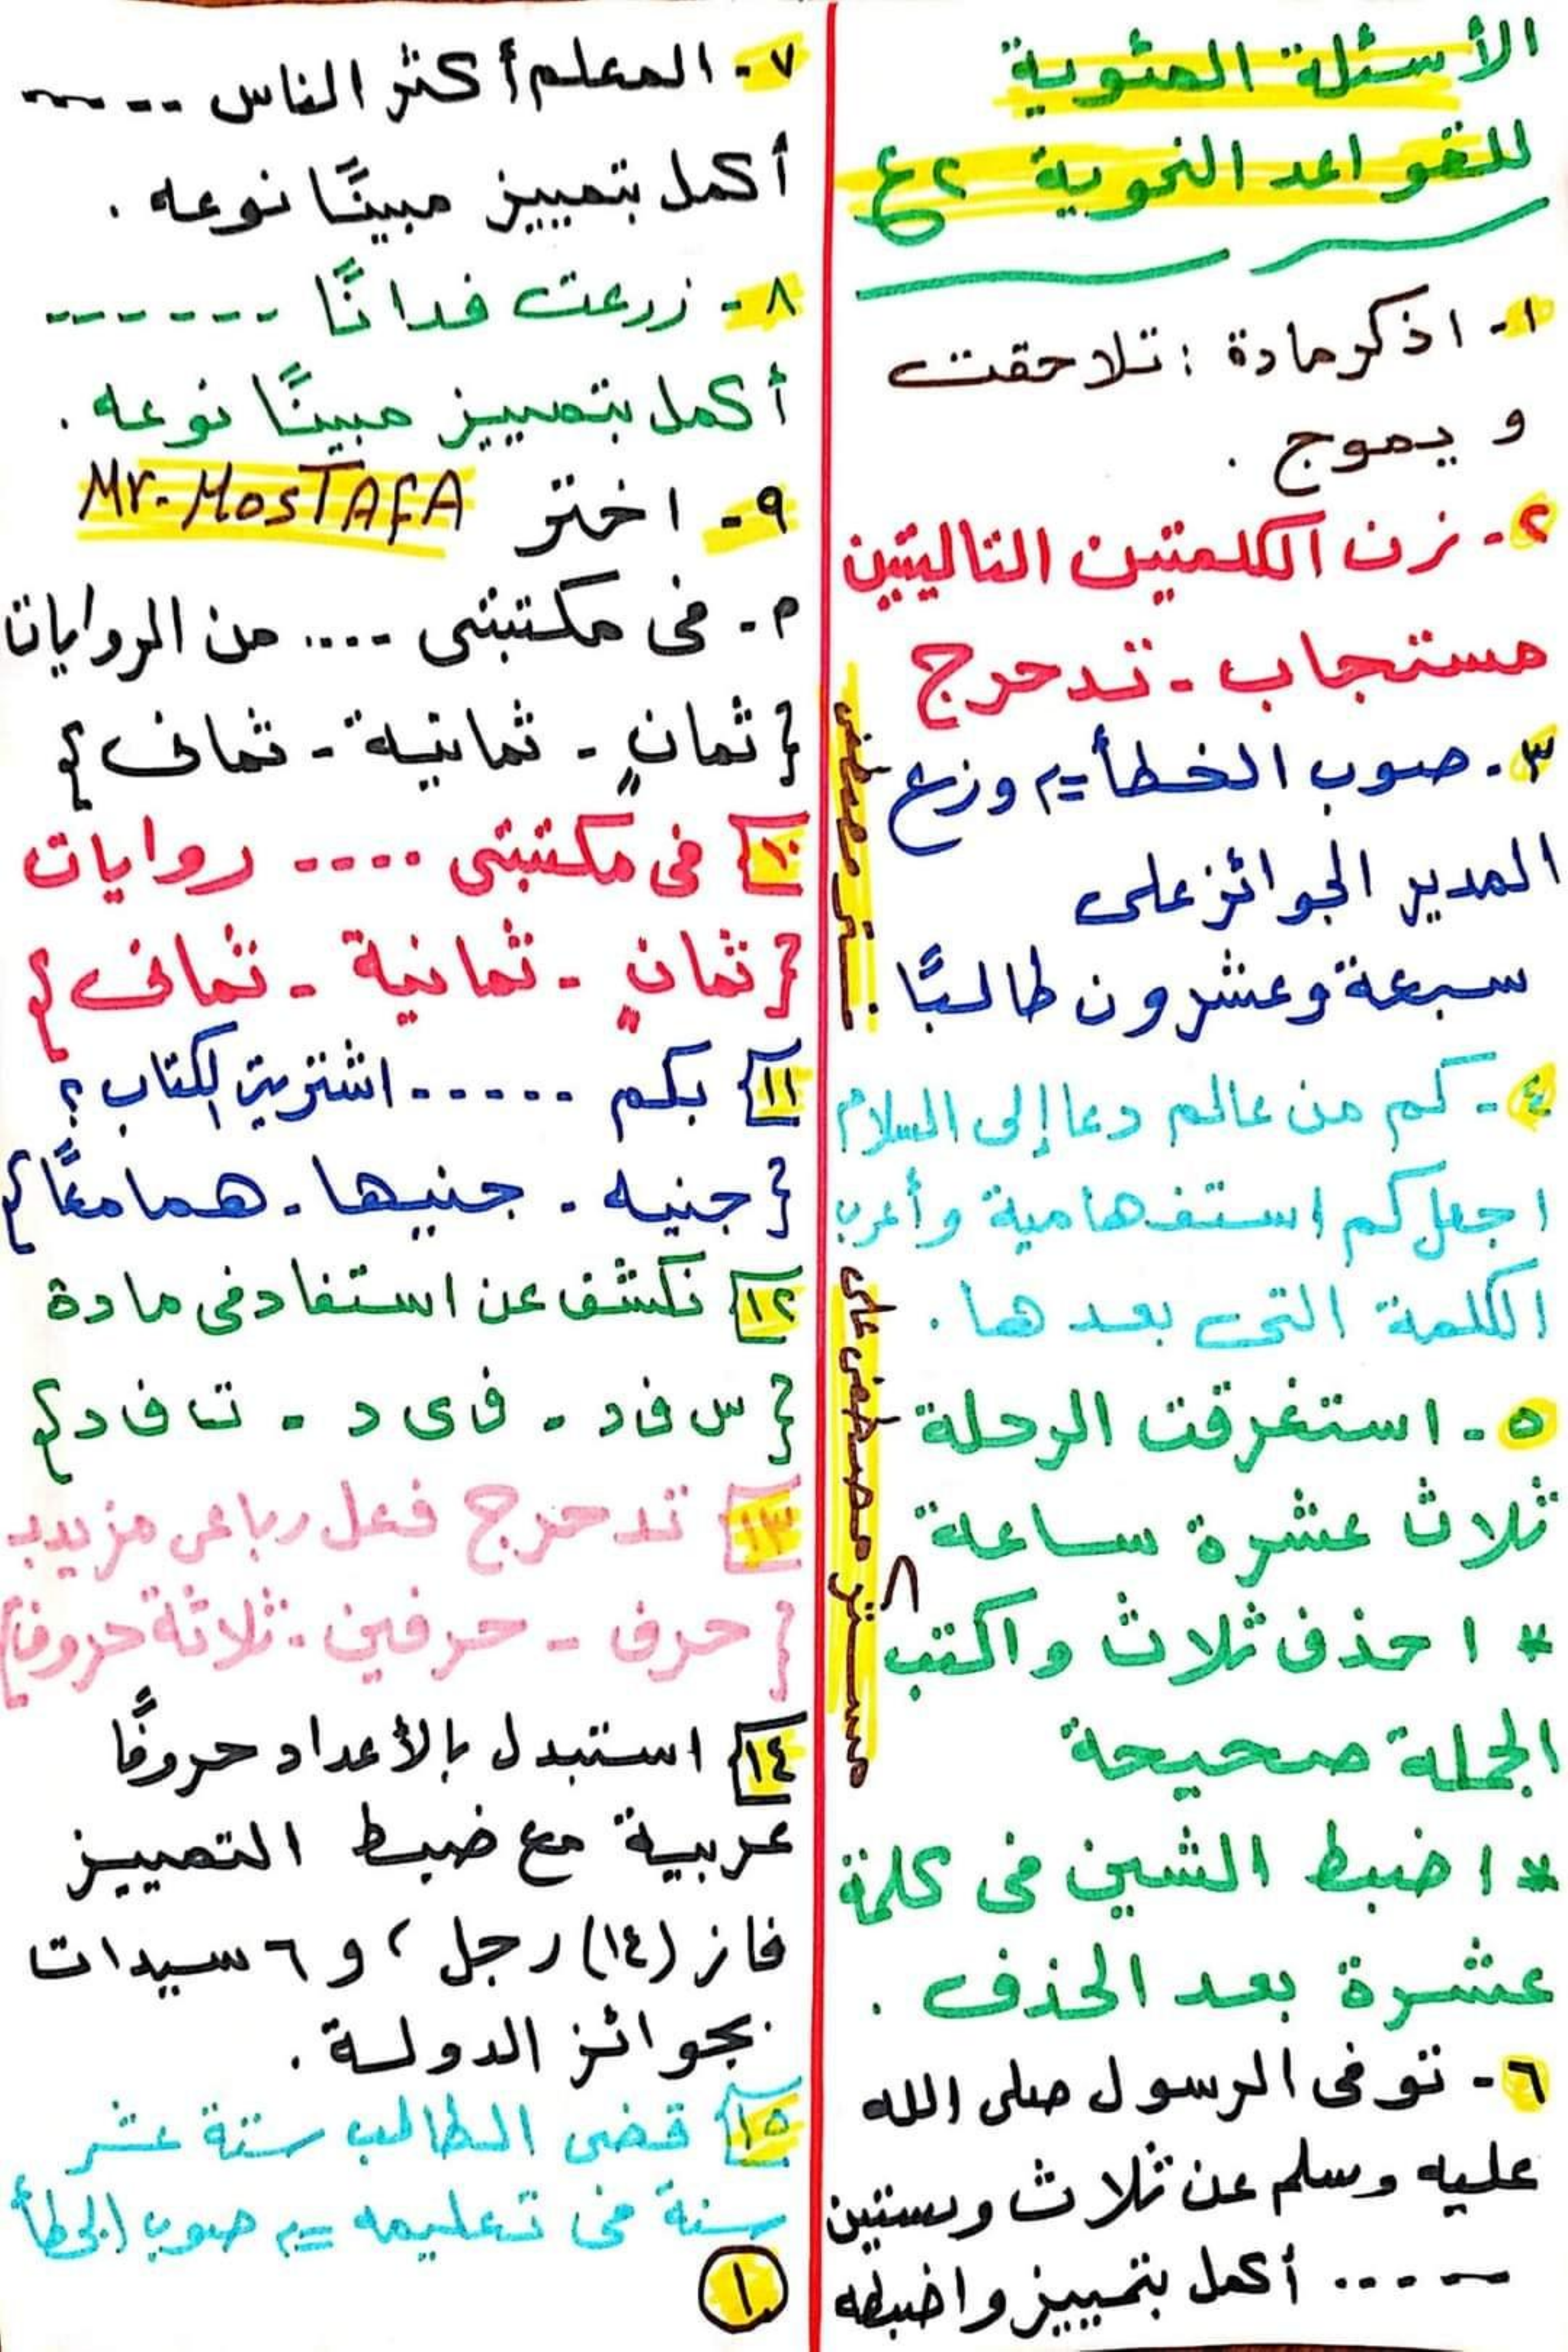 الأسئلة المئوية
للقواعد النحوية ٢ع
١- اذكر مادة : تلاحقت
و يموج .
٢- زن الكلمتين التاليتين
مستجاب - تدحرج
٣- صوب الخطأ = وزع
المدير الجوائز على
سبعة وعشرون طالبًا .
٤- كم من عالم دعا إلى السلام
اجعل كم استفهامية وأعرب
الكلمة التى بعدها .
٥- استغرقت الرحلة
ثلاث عشرة ساعة
* احذف ثلاث واكتب
الجملة صحيحة
* اضبط الشين فى كلمة
عشرة بعد الحذف .
٦- توفى الرسول صلى الله
عليه وسلم عن ثلاث وستين
..... أكمل بتمييز واضبطه
مستر مصطفى
مستر مصطفى على
٧- المعلم أكثر الناس .....
أكمل بتمييز مبينًا نوعه .
٨- زرعت فدانًا ------
أكمل بتمييز مبينًا نوعه .
٩- اختر Mr. MOSTAFA
م- فى مكتبتى .... من الروايات
{ثمانٍ - ثمانية - ثمانى}
١٠ فى مكتبتى .... روايات
{ثمانٍ - ثمانية - ثمانى}
١١ بكم ...... اشتريت الكتاب ؟
{جنيه - جنيها - هما معًا}
١٢ نكشف عن استفاد فى مادة
{س ف د - ف ى د - ت ف د}
١٣ تدحرج فعل رباعى مزيد بـ
{حرف - حرفين - ثلاثة حروف}
١٤ استبدل بالأعداد حروفًا
عربية مع ضبط التمييز
فاز (١٤) رجل ، و ٦ سيدات
بجوائز الدولة .
١٥ قضى الطالب ستة عشر
سنة فى تعليمه = صوب الخطأ
١